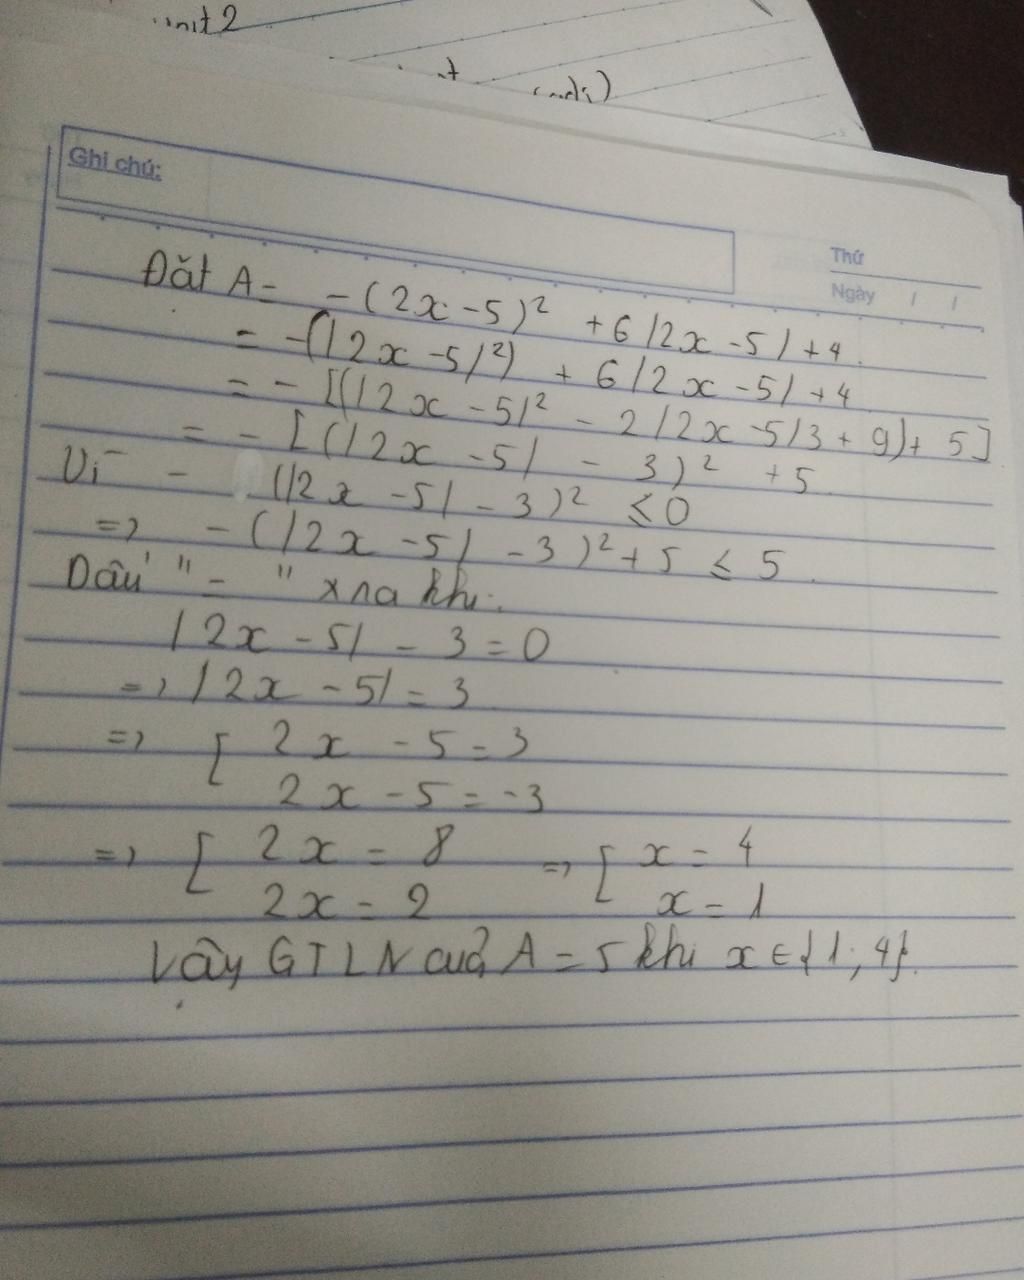 unit 2
Ghi chú:
Thứ
Ngày / /
Đặt A = -(2x - 5)² + 6|2x - 5| + 4
= -(|2x - 5|²) + 6|2x - 5| + 4
= - [(|2x - 5|² - 2|2x - 5|3 + 9) + 5]
= - [(|2x - 5| - 3)² + 5
Vì - (|2x - 5| - 3)² ≤ 0
=> - (|2x - 5| - 3)² + 5 ≤ 5
Dấu " = " xra khi:
|2x - 5| - 3 = 0
=> |2x - 5| = 3
=> [ 2x - 5 = 3
2x - 5 = -3
=> [ 2x = 8 => [ x = 4
2x = 2 x = 1
Vậy GTLN của A = 5 khi x ∈ {1; 4}.